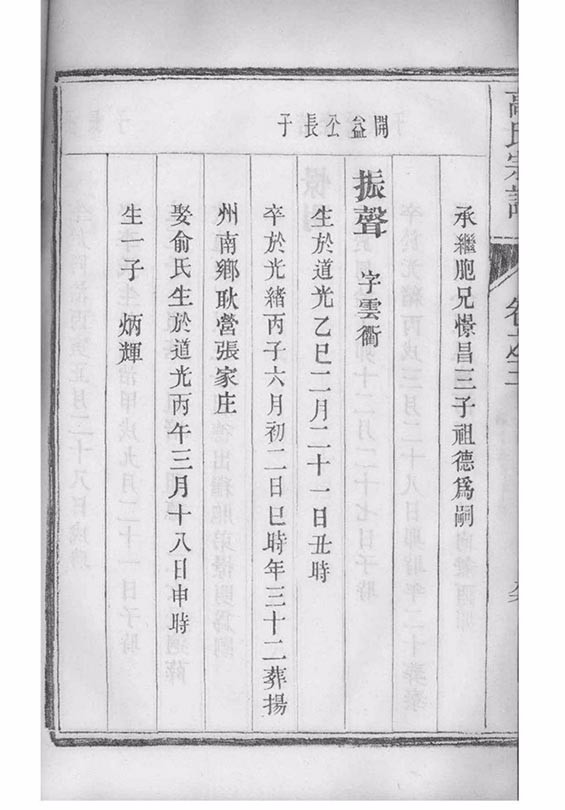 高氏宗譜
承繼胞兄憬昌三子祖德爲嗣
開益公長子
振聲 字雲衢
生於道光乙巳二月二十一日丑時
卒於光緒丙子六月初二日巳時年三十二葬揚
州南鄉耿營張家庄
娶俞氏生於道光丙午三月十八日申時
生一子 炳輝